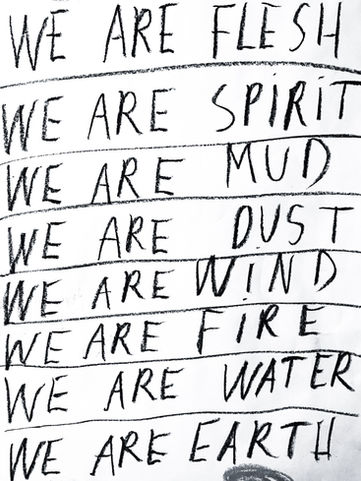 WE ARE FLESH
WE ARE SPiRiT
WE ARE MUD
WE ARE DUST
WE ARE WiND
WE ARE FiRE
WE ARE WATER
WE ARE EARTH